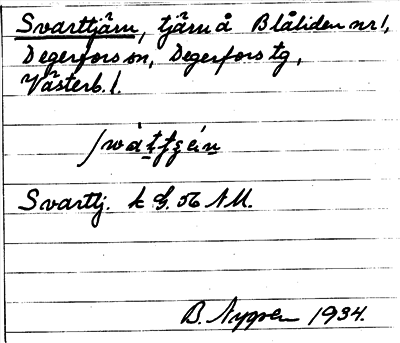 Svarttjärn, tjärn å Blåliden nr 1,
Degerfors sn, Degerfors tg,
Västerb. l.
Svarttj. k G. 56 NU.
B. Nygren 1934.